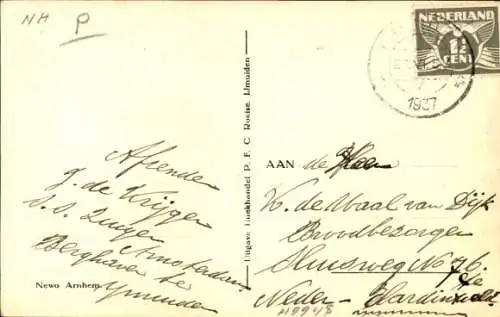 NH P
NEDERLAND
1½
CENT
1937
Uitgave Boekhandel P. F. C. Rosise. IJmuiden
Afzender
J. de Krijger
S.S. Zuiger Amsterdam
Berghaven te
Ymuiden
Newo Arnhem
AAN de Heer
K. de Waal van Dijk
Broodbezorger
Sluisweg No 76.
te
Neder-Hardinxveld